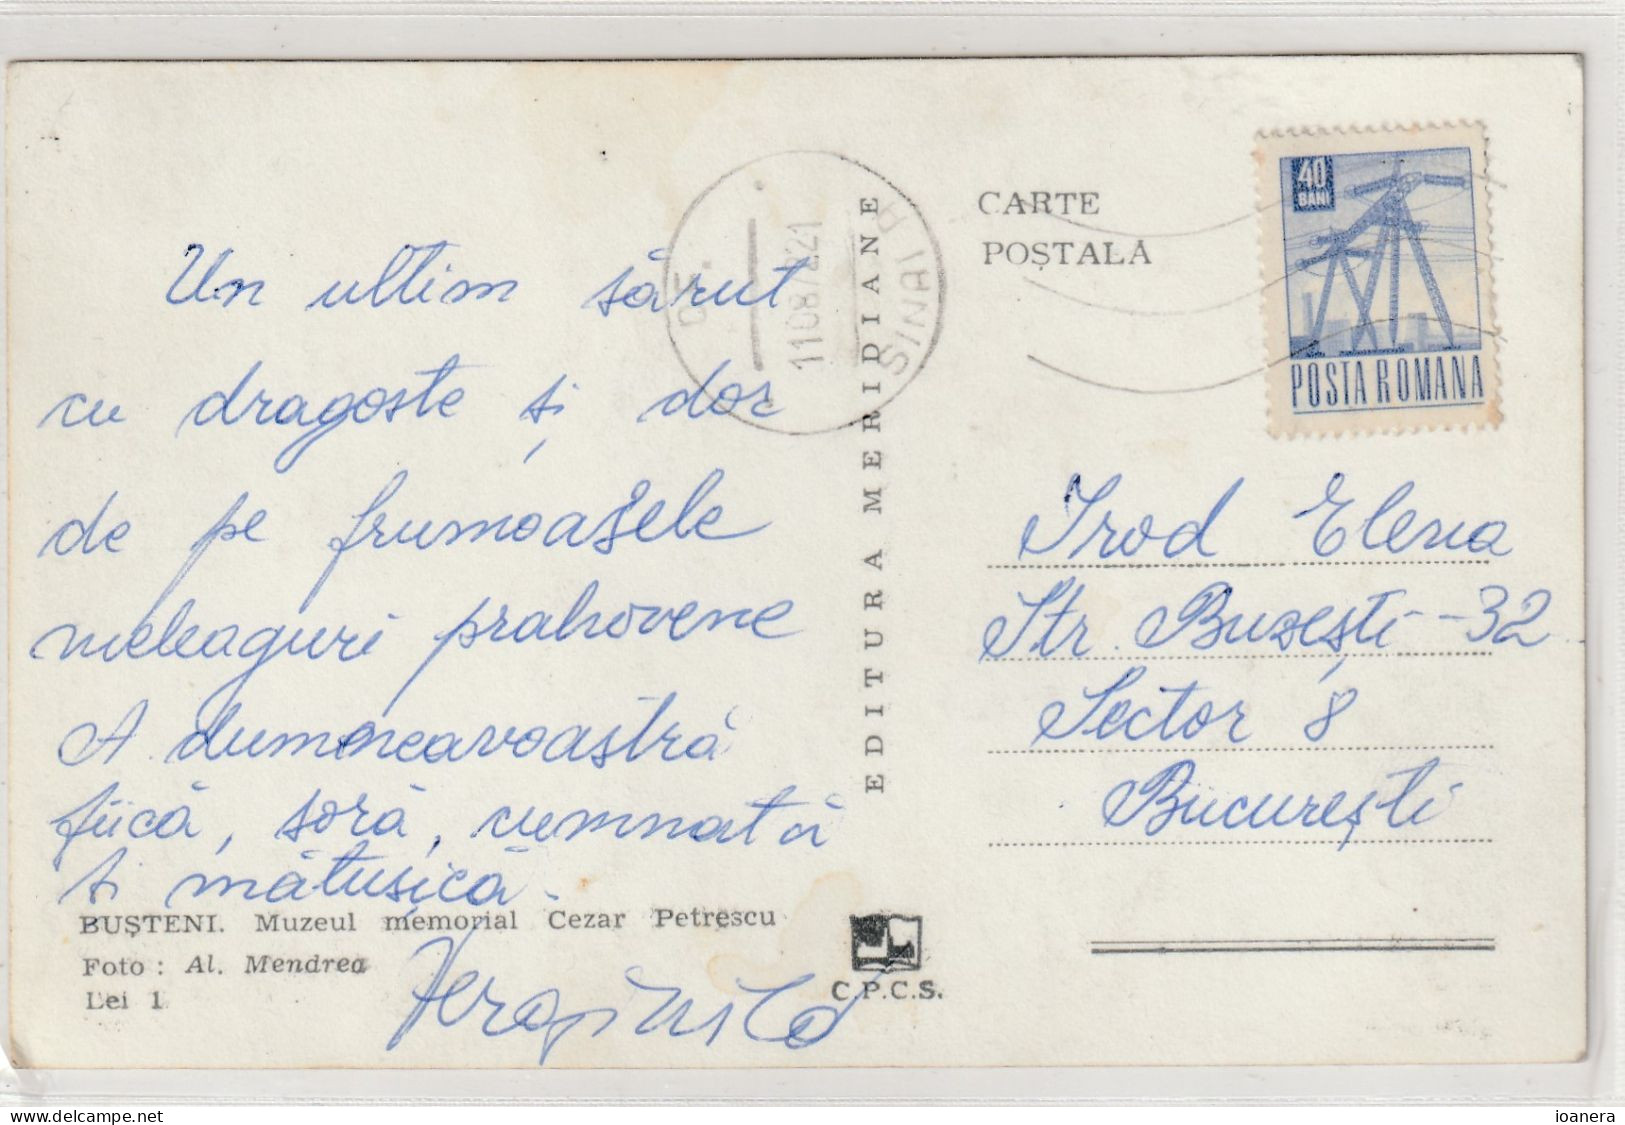 Un ultim sărut
cu dragoste și dor
de pe frumoasele
meleaguri prahovene
A dumneavoastră
fiică, soră, cumnată
și mătușică.
BUȘTENI. Muzeul memorial Cezar Petrescu
Foto : Al. Mendrea
Lei 1
C.P.C.S.
EDITURA MERIDIANE
SINAI
CARTE
POȘTALĂ
40
BANI
POSTA ROMANA
Irod Elena
Str. Buzești - 32
Sector 8
București
delcampe.net
ioanera